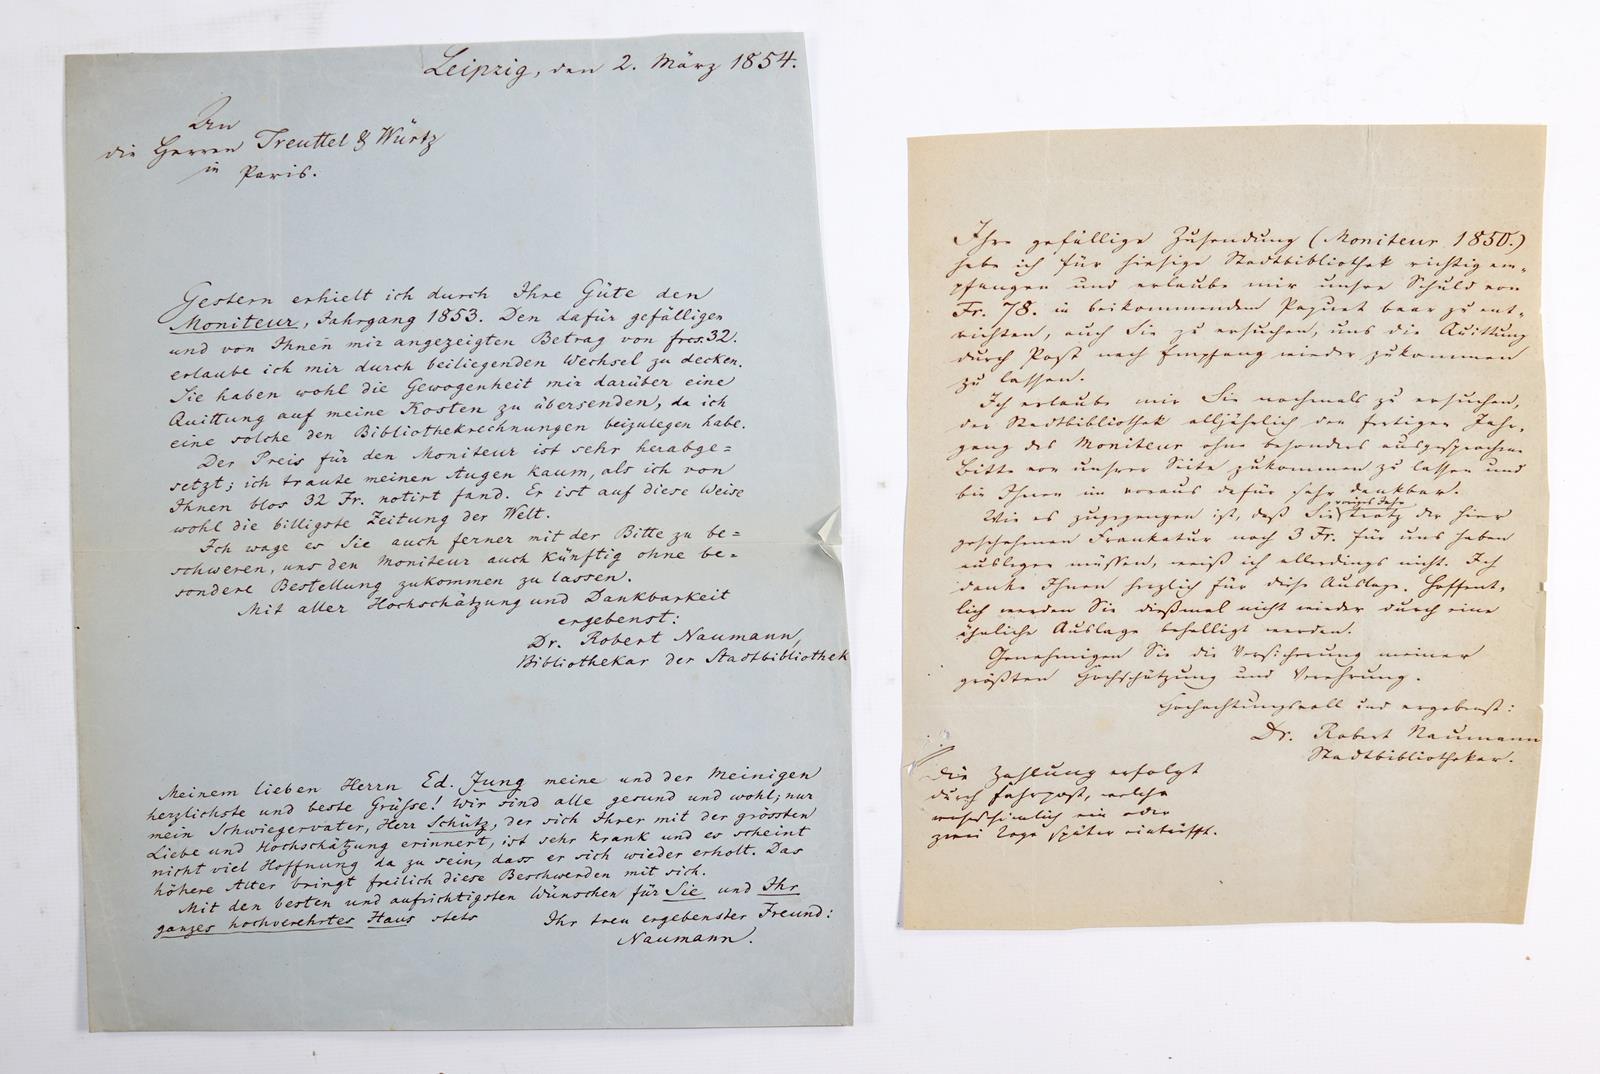 Leipzig, den 2. März 1854.
An
die Herren Treuttel & Würtz
in Paris.
Gestern erhielt ich durch Ihre Güte den
Moniteur, Jahrgang 1853. Den dafür gefälligen
und von Ihnen mir angezeigten Betrag von frcs. 32.
erlaube ich mir durch beiliegenden Wechsel zu decken.
Sie haben wohl die Gewogenheit mir darüber eine
Quittung auf meine Kosten zu übersenden, da ich
eine solche den Bibliothekrechnungen beizulegen habe.
Der Preis für den Moniteur ist sehr herabge=
setzt; ich traute meinen Augen kaum, als ich von
Ihnen blos 32 Fr. notirt fand. Er ist auf diese Weise
wohl die billigste Zeitung der Welt.
Ich wage es Sie auch ferner mit der Bitte zu be=
schweren, uns den Moniteur auch künftig ohne be=
sondere Bestellung zukommen zu lassen.
Mit aller Hochschätzung und Dankbarkeit
ergebenst:
Dr. Robert Naumann,
Bibliothekar der Stadtbibliothek
Meinem lieben Herrn Ed. Jung meine und der Meinigen
herzlichste und beste Grüsse! Wir sind alle gesund und wohl; nur
mein Schwiegervater, Herr Schütz, der sich Ihrer mit der grössten
Liebe und Hochschätzung erinnert, ist sehr krank und es scheint
nicht viel Hoffnung da zu sein, dass er sich wieder erholt. Das
höhere Alter bringt freilich diese Beschwerden mit sich.
Mit den besten und aufrichtigsten Wünschen für Sie und Ihr
ganzes hochverehrtes Haus stets Ihr treu ergebenster Freund:
Naumann.
Ihre gefällige Zusendung (Moniteur 1850.)
habe ich für hiesige Stadtbibliothek richtig em-
pfangen und erlaube mir unsre Schuld von
Fr. 78. in beikommendem Paquet baar zu ent-
richten, auch Sie zu ersuchen, uns die Quittung
durch Post nach Empfang wieder zukommen
zu lassen.
Ich erlaube mir Sie nochmals zu ersuchen,
der Stadtbibliothek alljährlich den fertigen Jahr-
gang des Moniteur ohne besonders ausgesprochene
Bitte von unsrer Seite zukommen zu lassen und
bin Ihnen im voraus dafür sehr dankbar.
Wie es zugegangen ist, daß Sie voriges Jahr trotz der hier
geschehenen Frankatur noch 3 Fr. für uns haben
auslegen müssen, weiß ich allerdings nicht. Ich
danke Ihnen herzlich für diese Auslage. Hoffent-
lich werden Sie dießmal nicht wieder durch eine
ähnliche Auslage behelligt werden.
Genehmigen Sie die Versicherung meiner
größten Hochschätzung und Verehrung.
Hochachtungsvoll und ergebenst:
Dr. Robert Naumann
Stadtbibliothekar.
Die Zahlung erfolgt
durch Fahrpost, welche
wahrscheinlich ein oder
zwei Tage später eintrifft.